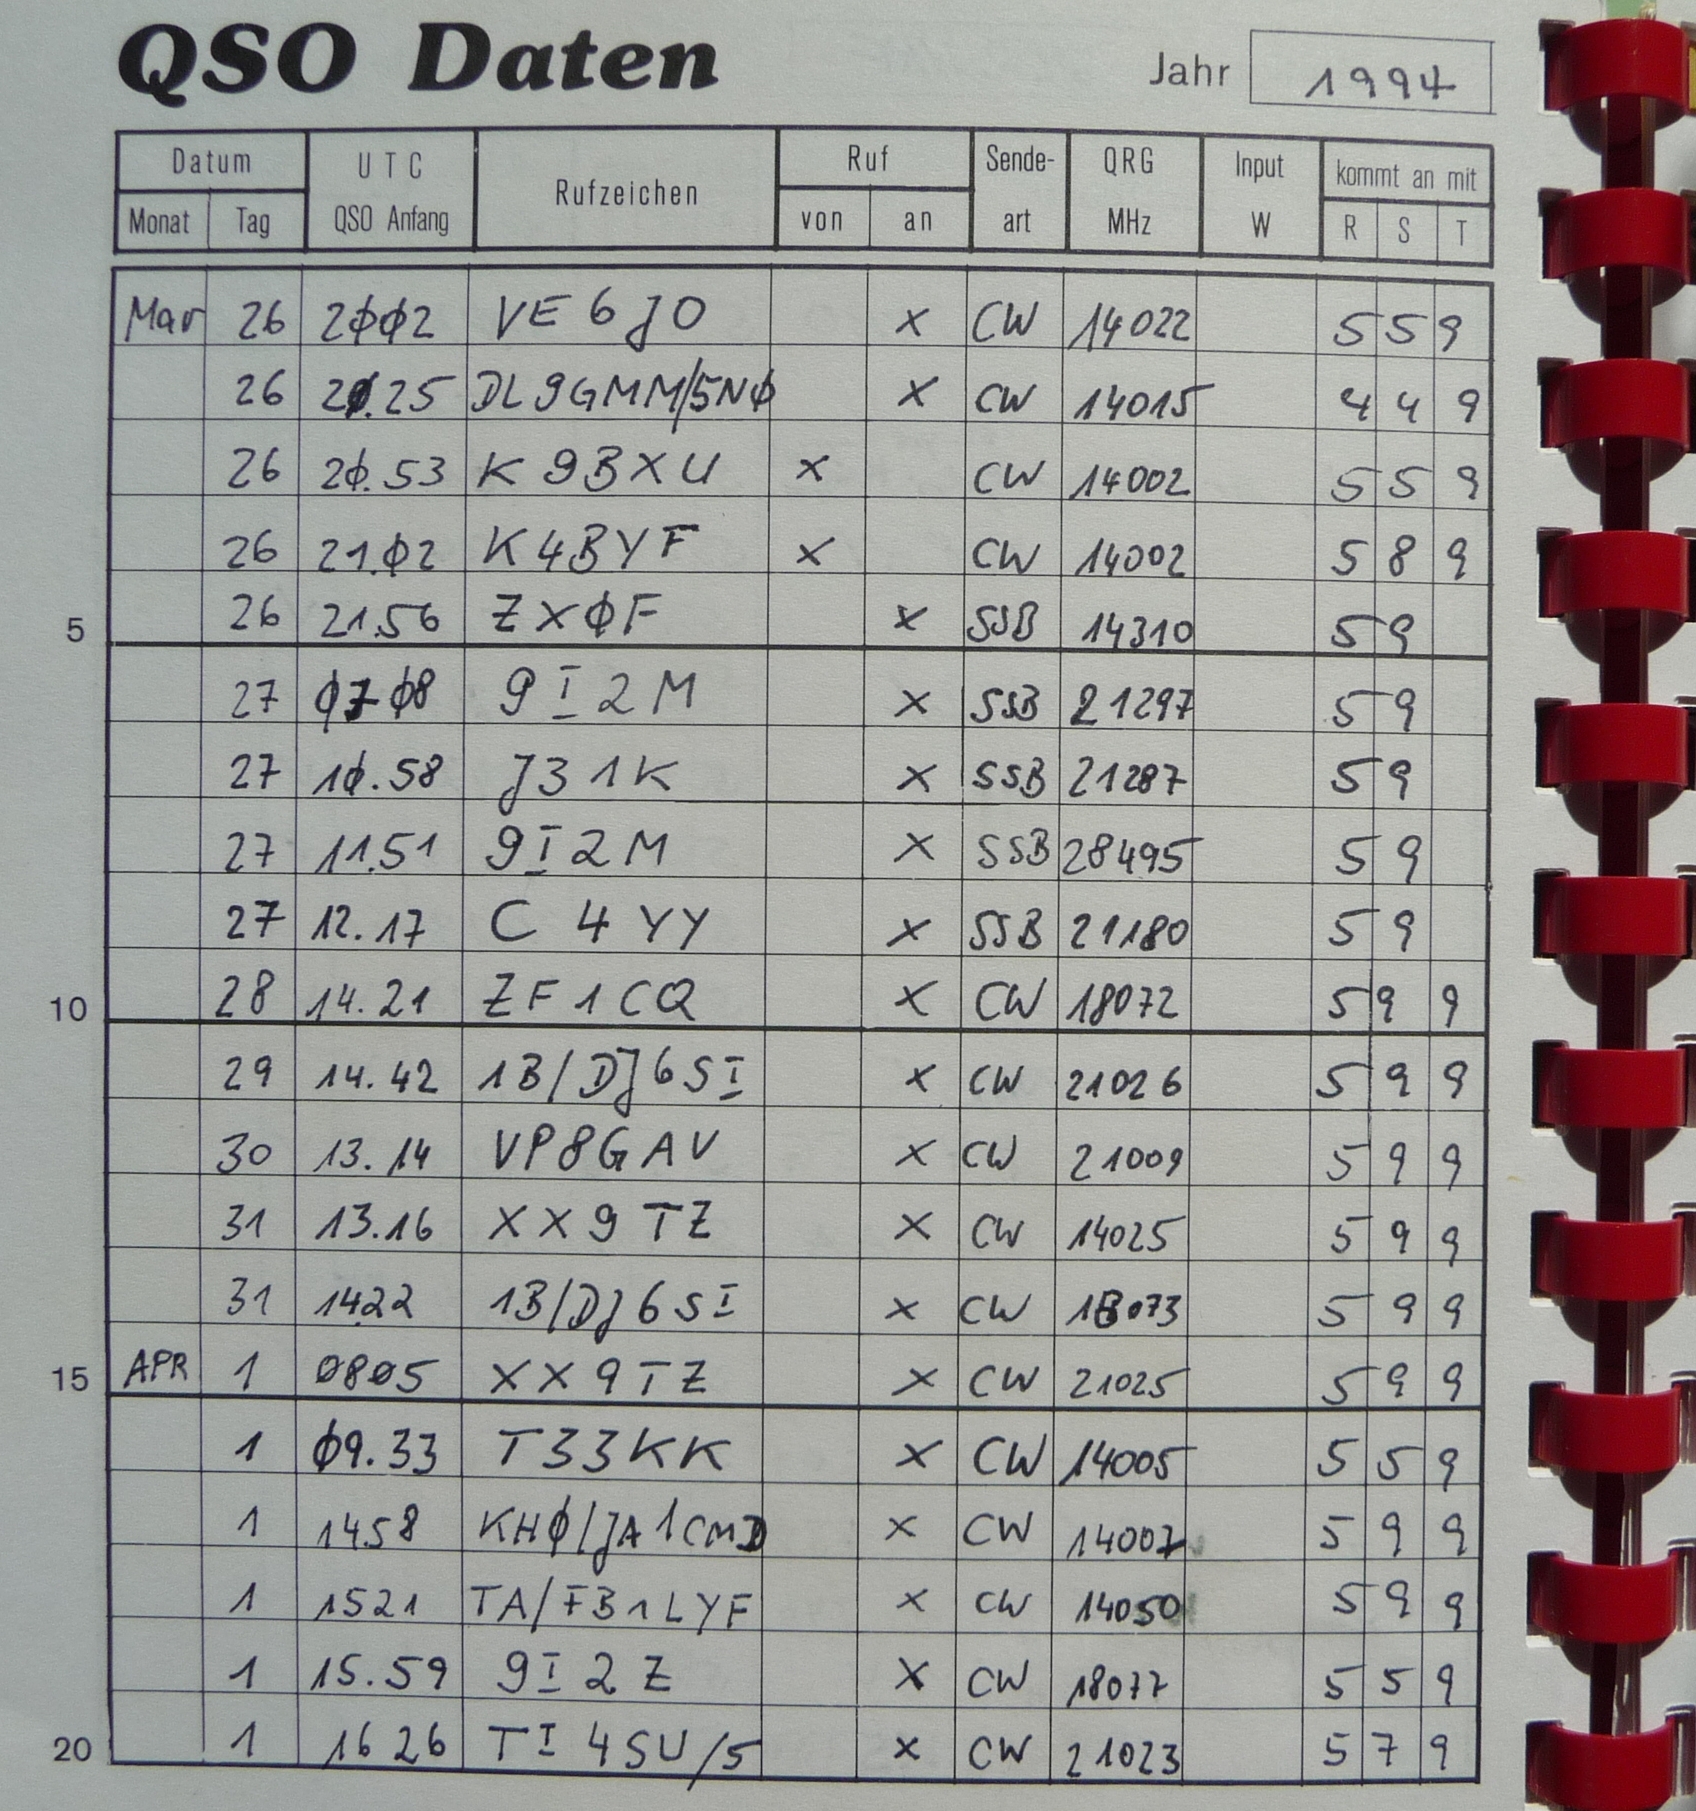 QSO Daten Jahr 1994
Datum UTC Rufzeichen Ruf Sende- QRG Input kommt an mit
Monat Tag QSO Anfang von an art MHz W R S T
Mar 26 2002 VE6JO x CW 14022 5 5 9
26 20.25 DL9GMM/5N0 x CW 14015 4 4 9
26 20.53 K9BXU x CW 14002 5 5 9
26 21.02 K4BYF x CW 14002 5 8 9
5 26 21.56 ZX0F x SSB 14310 5 9
27 07 08 9I2M x SSB 21297 5 9
27 10.58 J31K x SSB 21287 5 9
27 11.51 9I2M x SSB 28495 5 9
27 12.17 C4YY x SSB 21180 5 9
10 28 14.21 ZF1CQ x CW 18072 5 9 9
29 14.42 1B/DJ6SI x CW 21026 5 9 9
30 13.14 VP8GAV x CW 21009 5 9 9
31 13.16 XX9TZ x CW 14025 5 9 9
31 14.22 1B/DJ6SI x CW 18073 5 9 9
15 APR 1 0805 XX9TZ x CW 21025 5 9 9
1 09.33 T33KK x CW 14005 5 5 9
1 14.58 KH0/JA1CMD x CW 14007 5 9 9
1 1521 TA/FB1LYF x CW 14050 5 9 9
1 15.59 9I2Z x CW 18077 5 5 9
20 1 16 26 TI4SU/5 x CW 21023 5 7 9